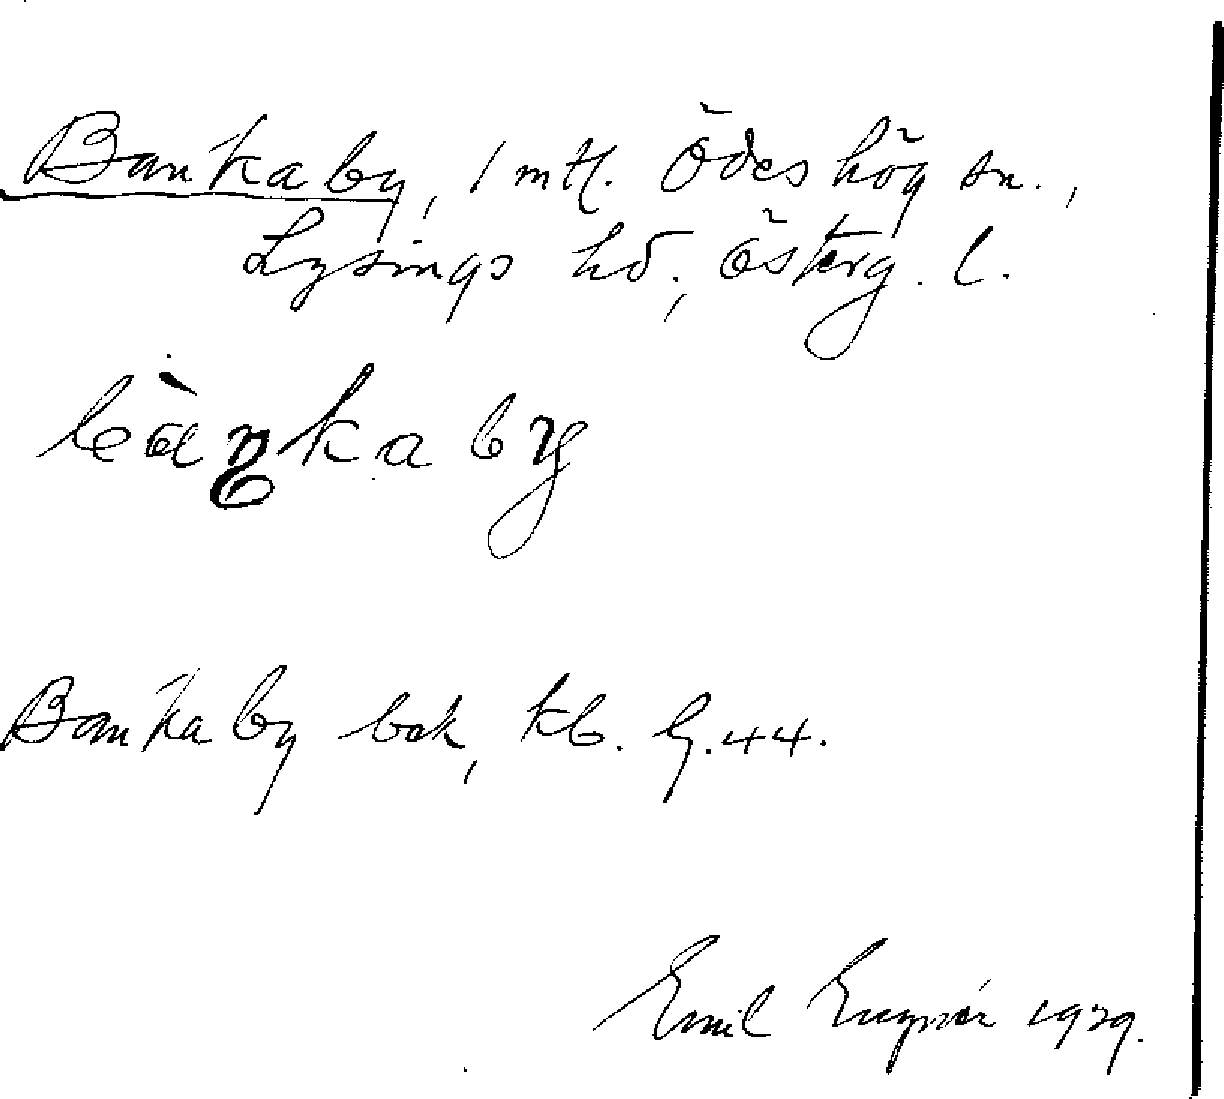 Bankaby, 1 mtl. Ödeshög sn.,
Lysings hd., Österg. l.
bàŋkaby
Bankaby bok, kb. G. 44.
Emil 1929.